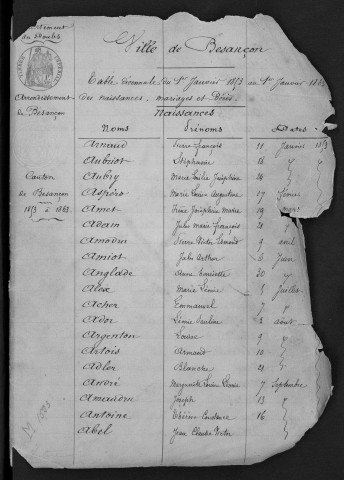 Département
du Doubs
Arrondissement
de Besançon
Canton
de Besançon
1853 à 1863
Ville de Besançon
Table décennale du 1er Janvier 1853 au 1er Janvier 1863
des naissances, mariages et Décès.
Naissances
Noms Prénoms Dates
Arnaud Pierre François 11 Janvier 1853
Aubriot Stéphanie 18 "
Aubry Marie Joséphine 24 "
Marie Louise Augustine 17 février
Amet Irène Joséphine Marie 19 mars
Adam Jules Marie François 21 "
Pierre Victor 9 avril
Amiot Jules Arthur 6 Juin
Anglade Anne Henriette 30 "
Alex Marie Léonie 5 Juillet
Acher Emmanuel 7 "
Ador Léonie Pauline 3 août
Argenton Louise 9 "
Artois Armand 10 "
Adler Blanche 21 "
André Marguerite Louise 7 Septembre
Joseph 13 "
Antoine Thérèse Constance 16 "
Abel Jean Claude Victor